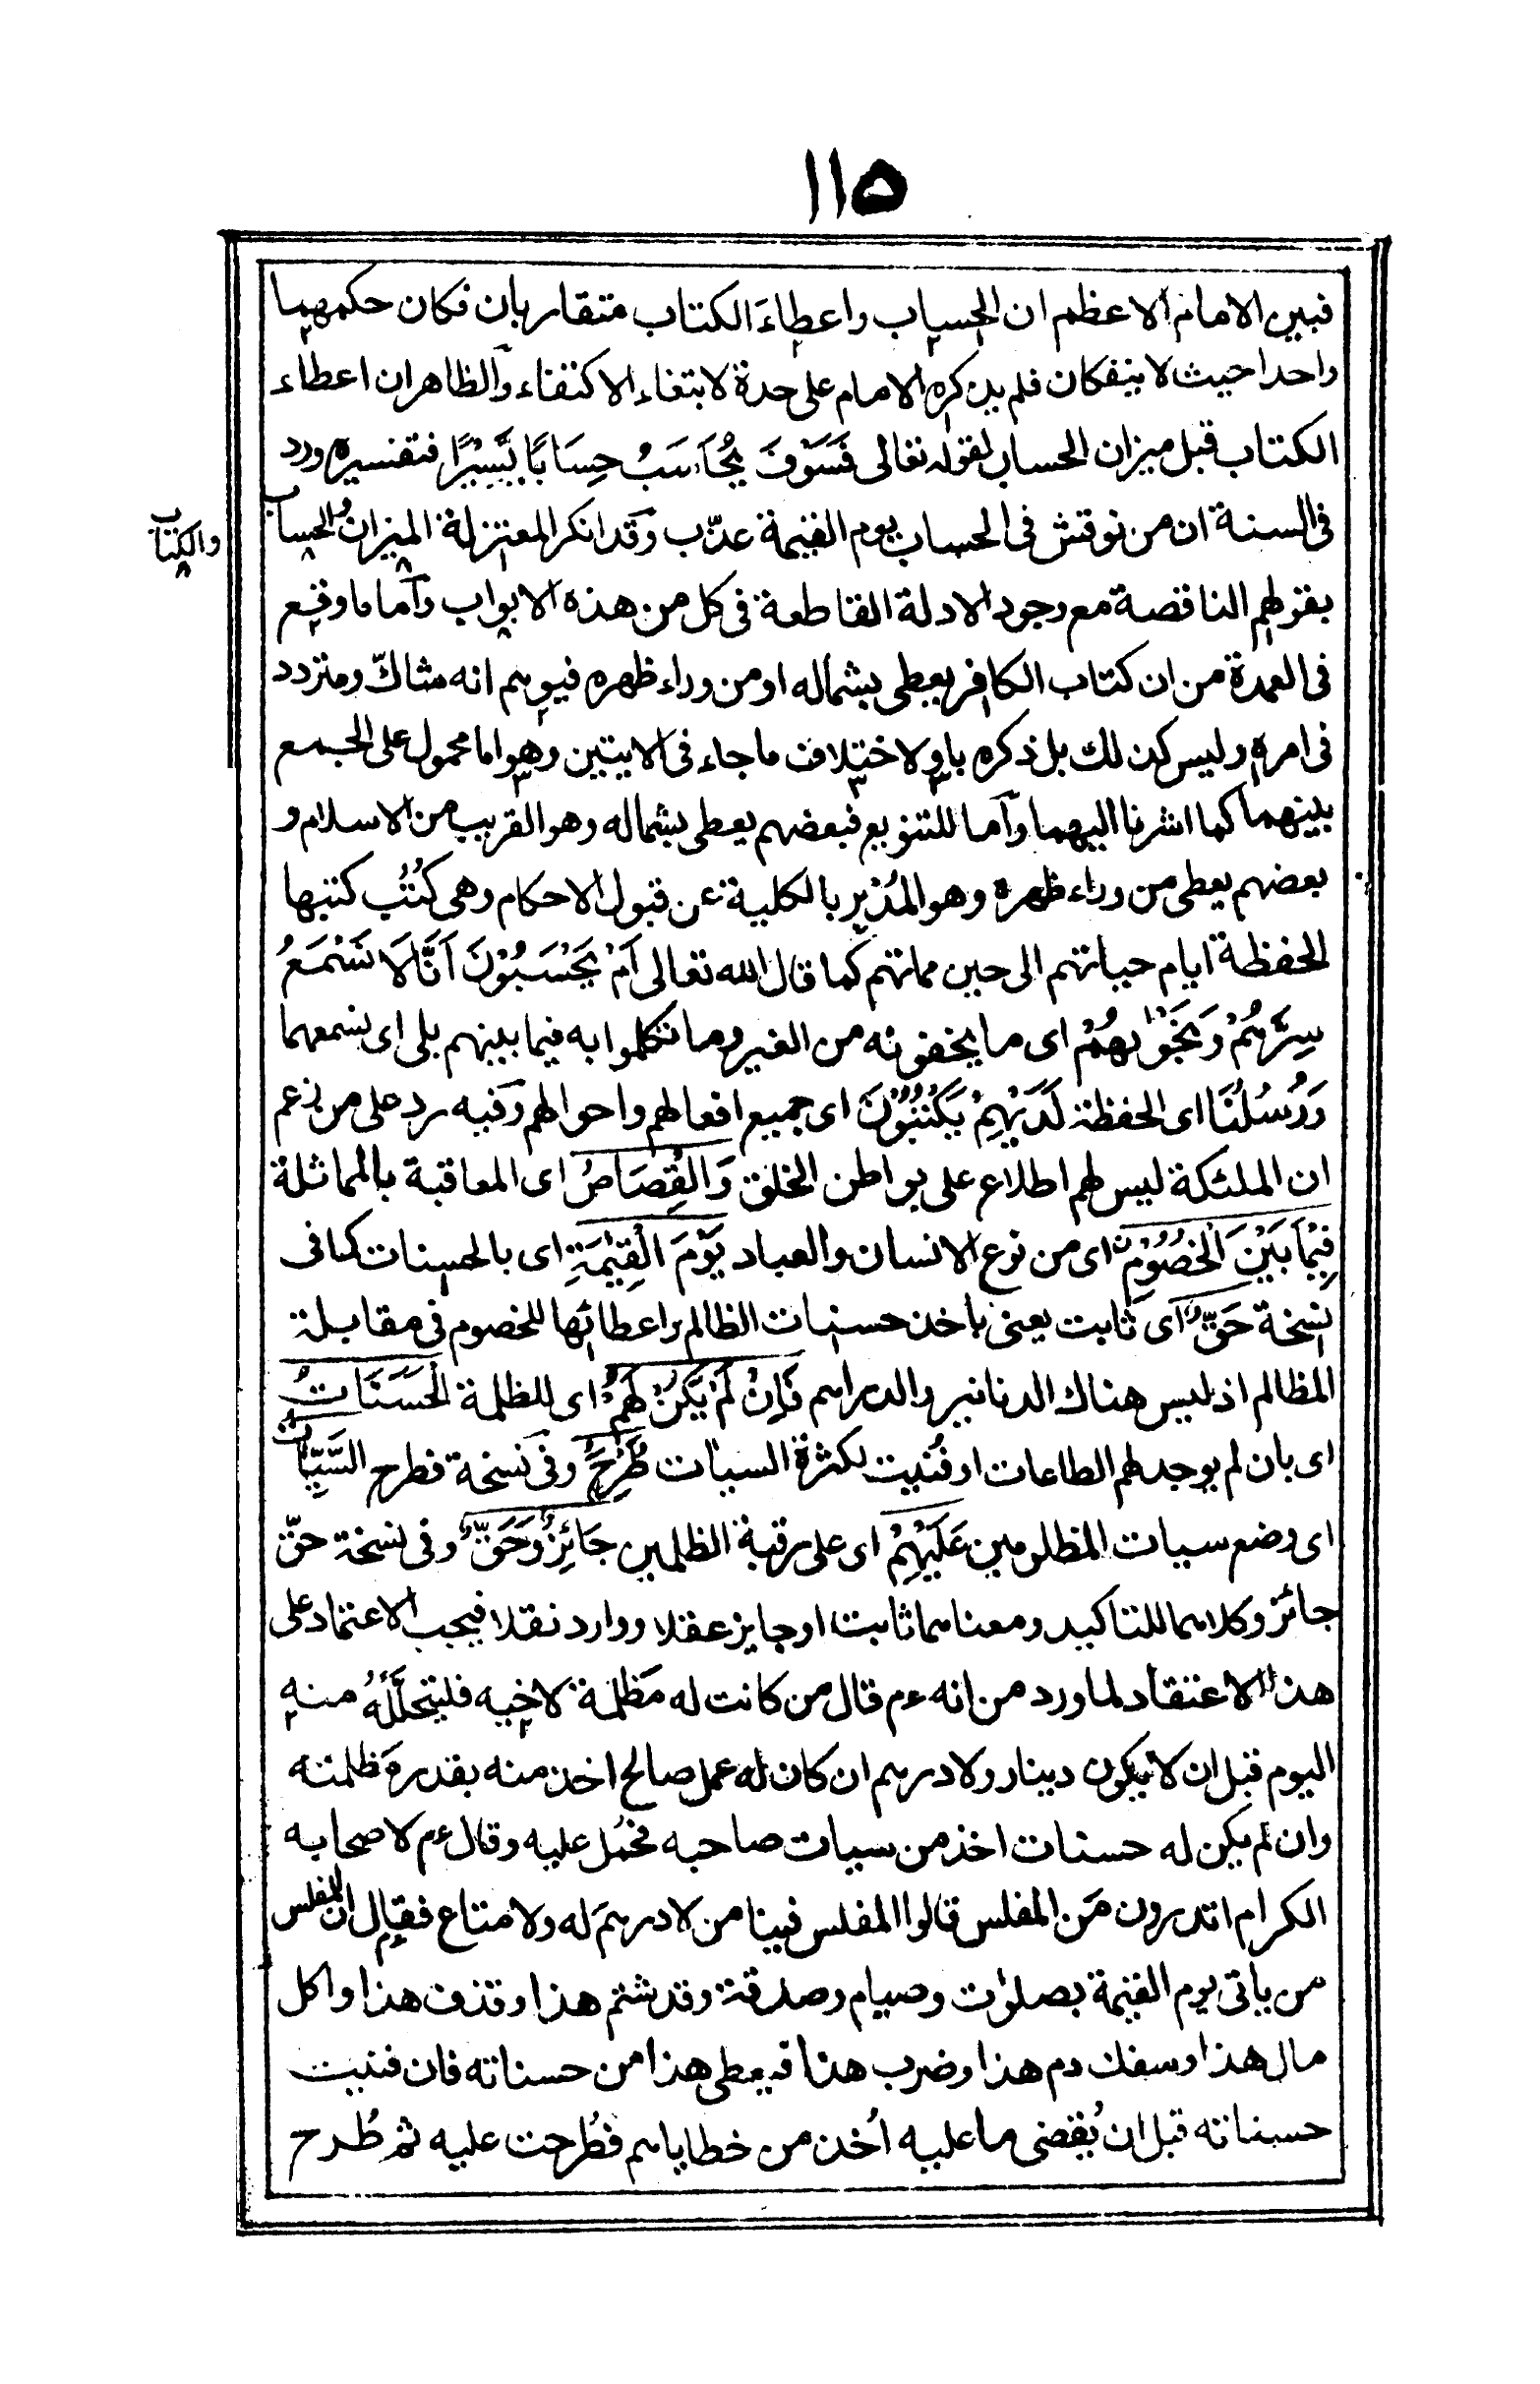 ١١٥
فبين الامام الاعظم ان الحساب واعطاء الكتاب متقاربان فكان حكمهما
واحدا حيث لا ينفكان فلم يذكره الامام على حدة لابتغاء الاكتفاء والظاهر ان اعطاء
الكتاب قبل ميزان الحساب لقوله تعالى فَسَوْفَ يُحَاسَبُ حِسَابًا يَّسِيْرًا فتفسيره ورد
فى السنة ان من نوقش فى الحساب يوم القيمة عذّب وقد انكر المعتزلة الميزان والحساب
والكتاب
بقولهم الناقصة مع وجود الادلة القاطعة فى كل من هذه الابواب واما ما وقع
فى العمدة من ان كتاب الكافر يعطى بشماله او من وراء ظهره فيوهم انه شاكّ ومتردد
فى امره وليس كذلك بل ذكره باو لاختلاف ما جاء فى الايتين وهو اما محمول على الجمع
بينهما كما اشرنا اليهما واما للتنويع فبعضهم يعطى بشماله وهو القريب من الاسلام و
بعضهم يعطى من وراء ظهره وهو المُدْبِر بالكلية عن قبول الاحكام وهى كُتُب كتبها
الحفظة ايام حياتهم الى حين مماتهم كما قال الله تعالى اَمْ يَحْسَبُوْنَ اَنَّا لَا نَسْمَعُ
سِرَّهُمْ وَنَجْوٰىهُمْ اى ما يخفونه من الغير وما تكلموا به فيما بينهم بلى اى نسمعهما
وَرُسُلُنَا اى الحفظة لَدَيْهِمْ يَكْتُبُوْنَ اى جميع افعالهم واحوالهم وفيه رد على من زعم
ان الملئكة ليس لهم اطلاع على بواطن الخلق وَالْقِصَاصُ اى المعاقبة بالمماثلة
فِيْمَا بَيْنَ الْخُصُوْمِ اى من نوع الانسان والعباد يَوْمَ الْقِيٰمَةِ اى بالحسنات كما فى
نسخة حَقٌّ اى ثابت يعنى باخذ حسنات الظالم واعطائها للخصوم فى مقابلة
المظالم اذ ليس هناك الدنانير والدراهم فَاِنْ لَمْ يَكُنْ لَهُمْ اى للظلمة الْحَسَنَاتُ
اى بان لم يوجد لهم الطاعات او فُنيت لكثرة السيات طُرِحَ وفى نسخة فطرح السَّيِّاٰتُ
اى وضع سيات المظلومين عَلَيْهِمْ اى على رقبة الظلمين جَائِزٌ وَحَقٌّ وفى نسخة حقّ
جائز وكلاهما للتاكيد ومعناهما ثابت او جايز عقلا ووارد نقلا فيجب الاعتماد على
هذا الاعتقاد لما ورد من انه ءم قال من كانت له مَظلمة لاخيه فليتحلَّلهُ منه
اليوم قبل ان لا يكون دينار ولا درهم ان كان له عمل صالح اخذ منه بقدر مَظلمته
وان لم يكن له حسنات اخذ من سيات صاحبه فحُمل عليه وقال ءم لاصحابه
الكرام اتدرون مَن المفلس قالوا المفلس فينا من لا درهمَ له ولا متاع فقال ان المفلس
من ياتى يوم القيمة بصلوٰت وصيام وصدقة وقد شتم هذا وقذف هذا واكل
مال هذا وسفك دم هذا وضرب هذا فيعطى هذا من حسناته فان فنيت
حسناته قبل ان يُقضى ما عليه اُخذ من خطاياهم فطُرحت عليه ثم طُرح